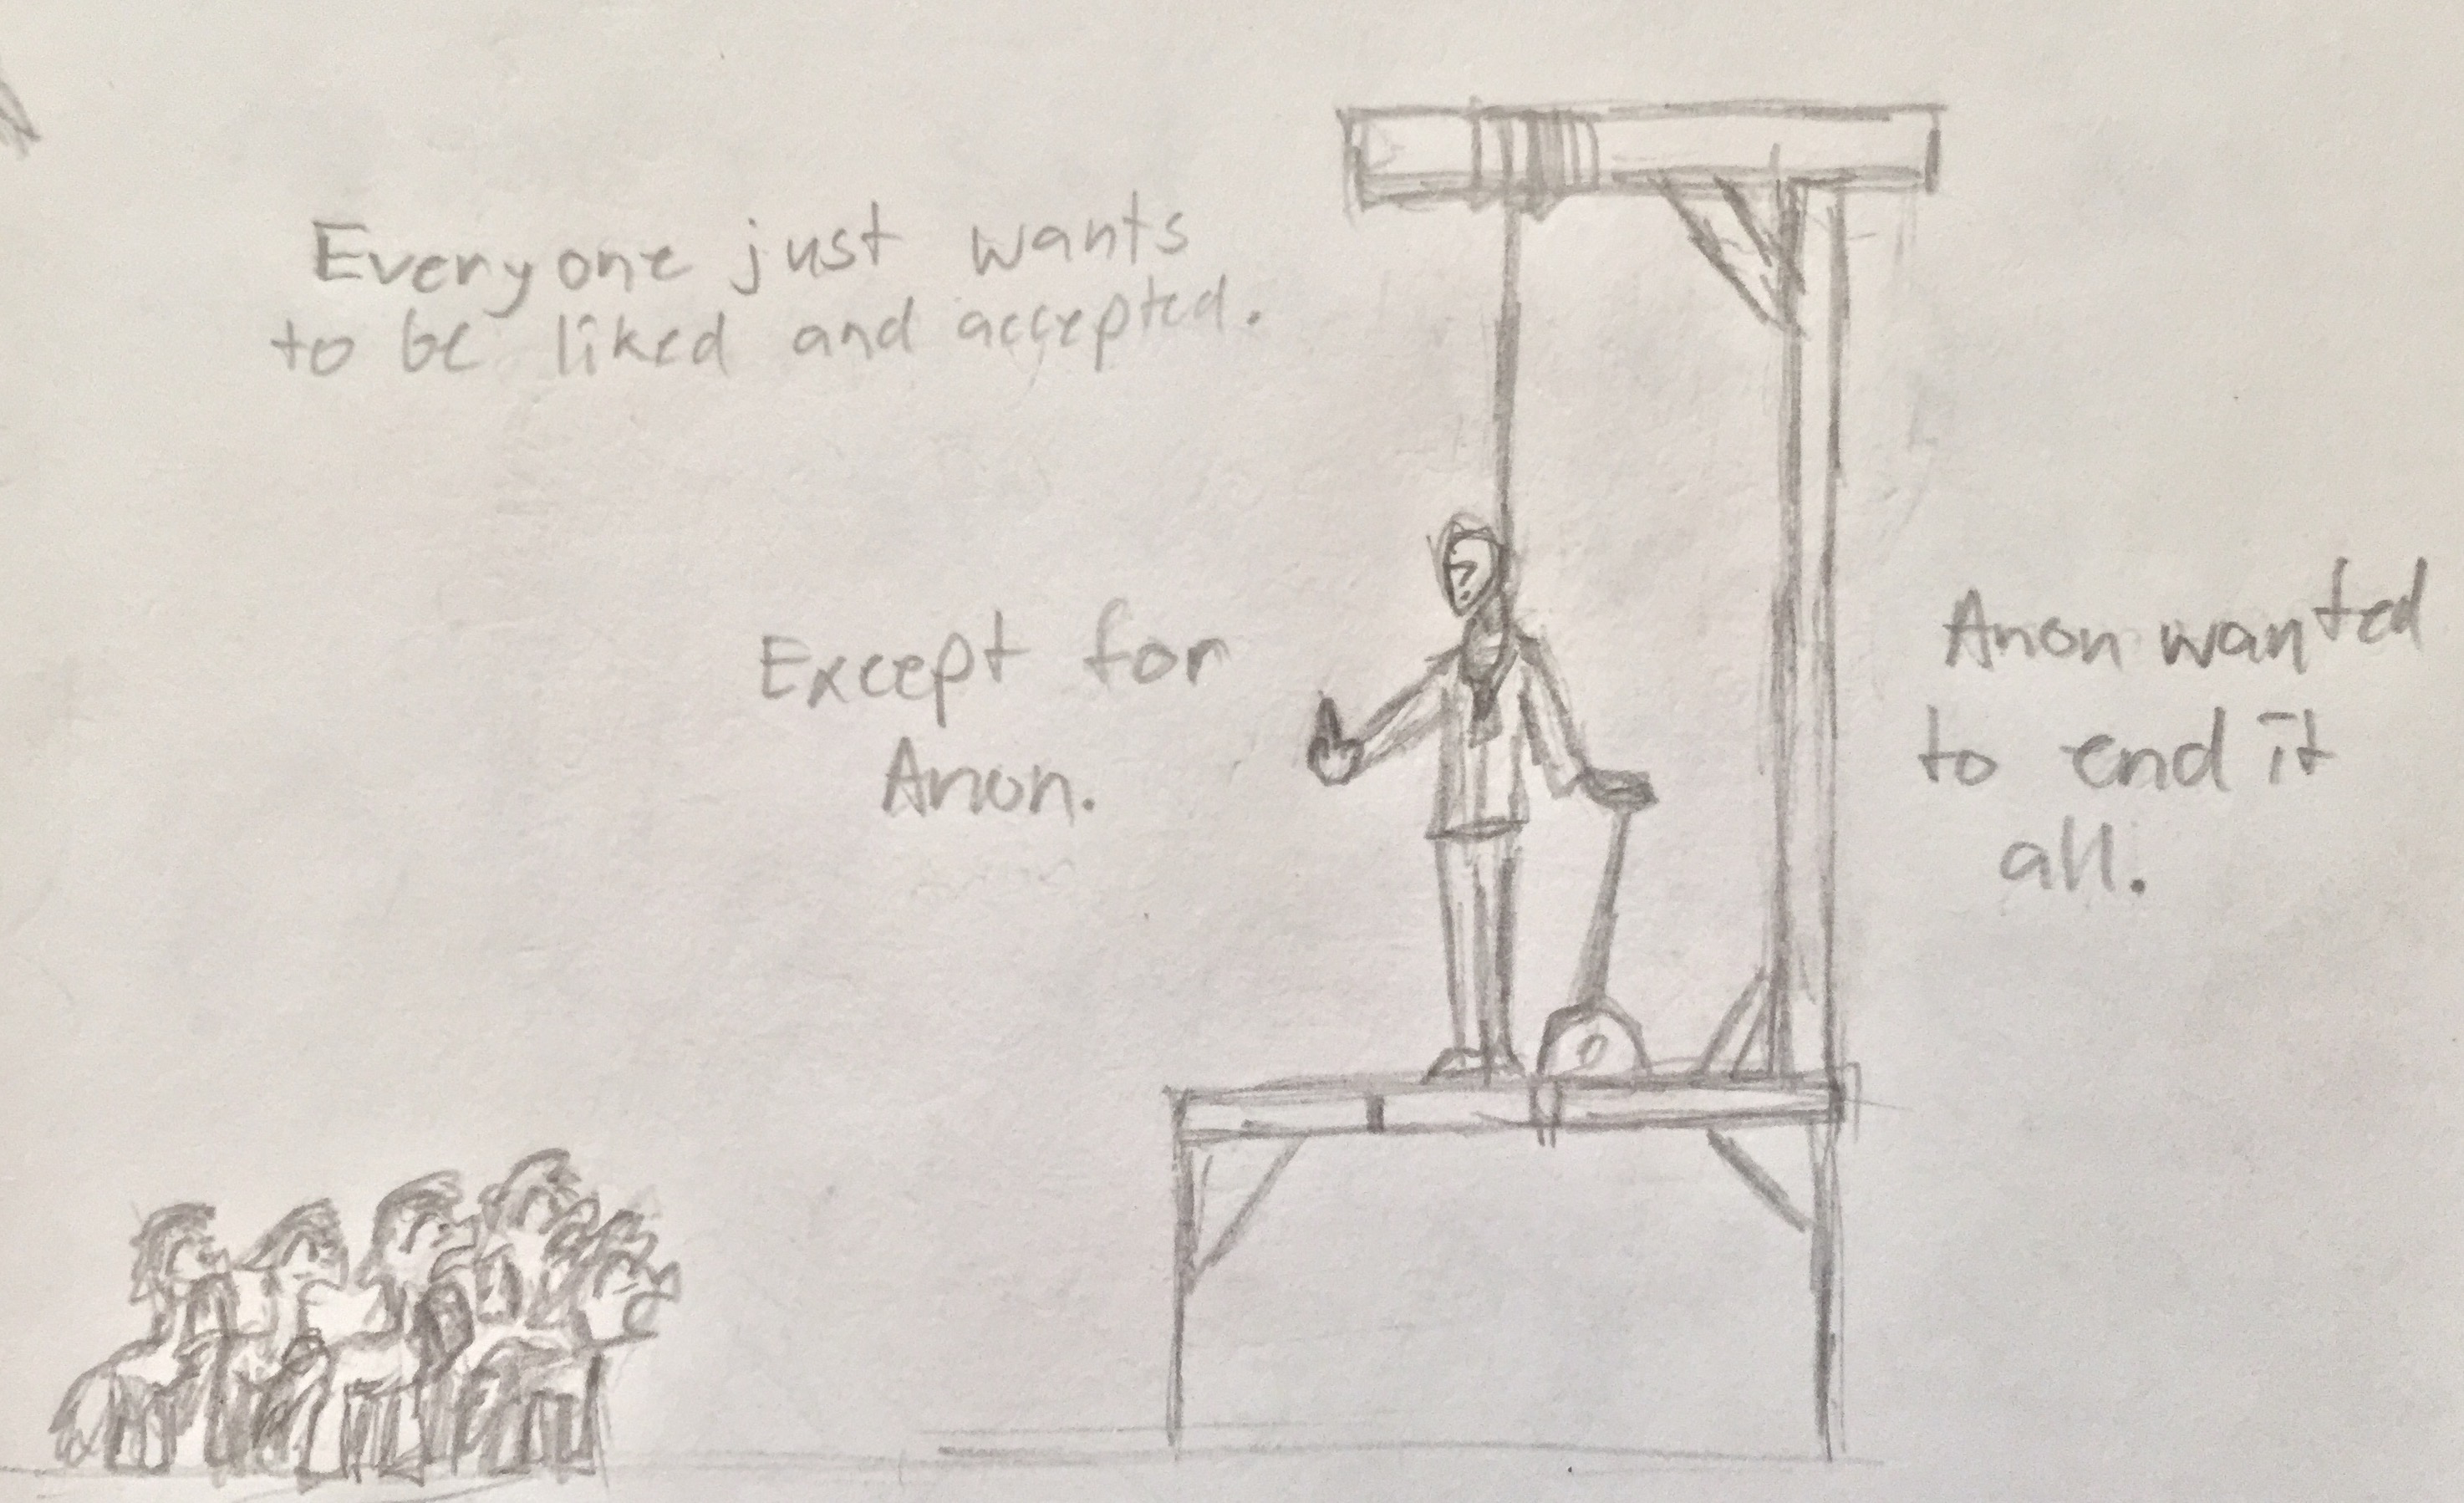 Everyone just wants
to be liked and accepted.
Except for
Anon.
Anon wanted
to end it
all.